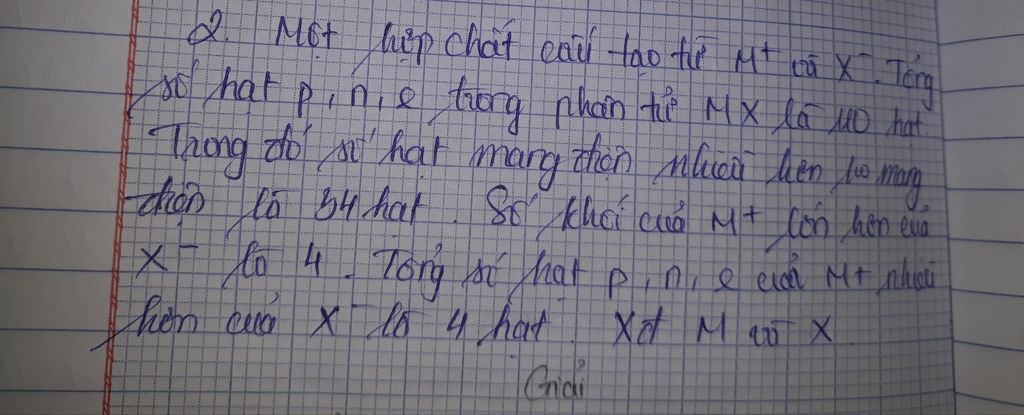 2. Một hợp chất cấu tạo từ M+ và X-. Tổng
số hạt p, n, e trong phân tử MX là 110 hạt.
Trong đó số hạt mang điện nhiều hơn ko mang
điện là 34 hạt. Số khối của M+ lớn hơn của
X- là 4. Tổng số hạt p, n, e của M+ nhiều
hơn của X- là 4 hạt. Xđ M và X
Giải